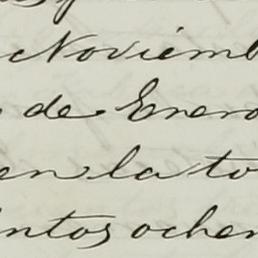 Noviemb
de Enero
en la to
intos ochen